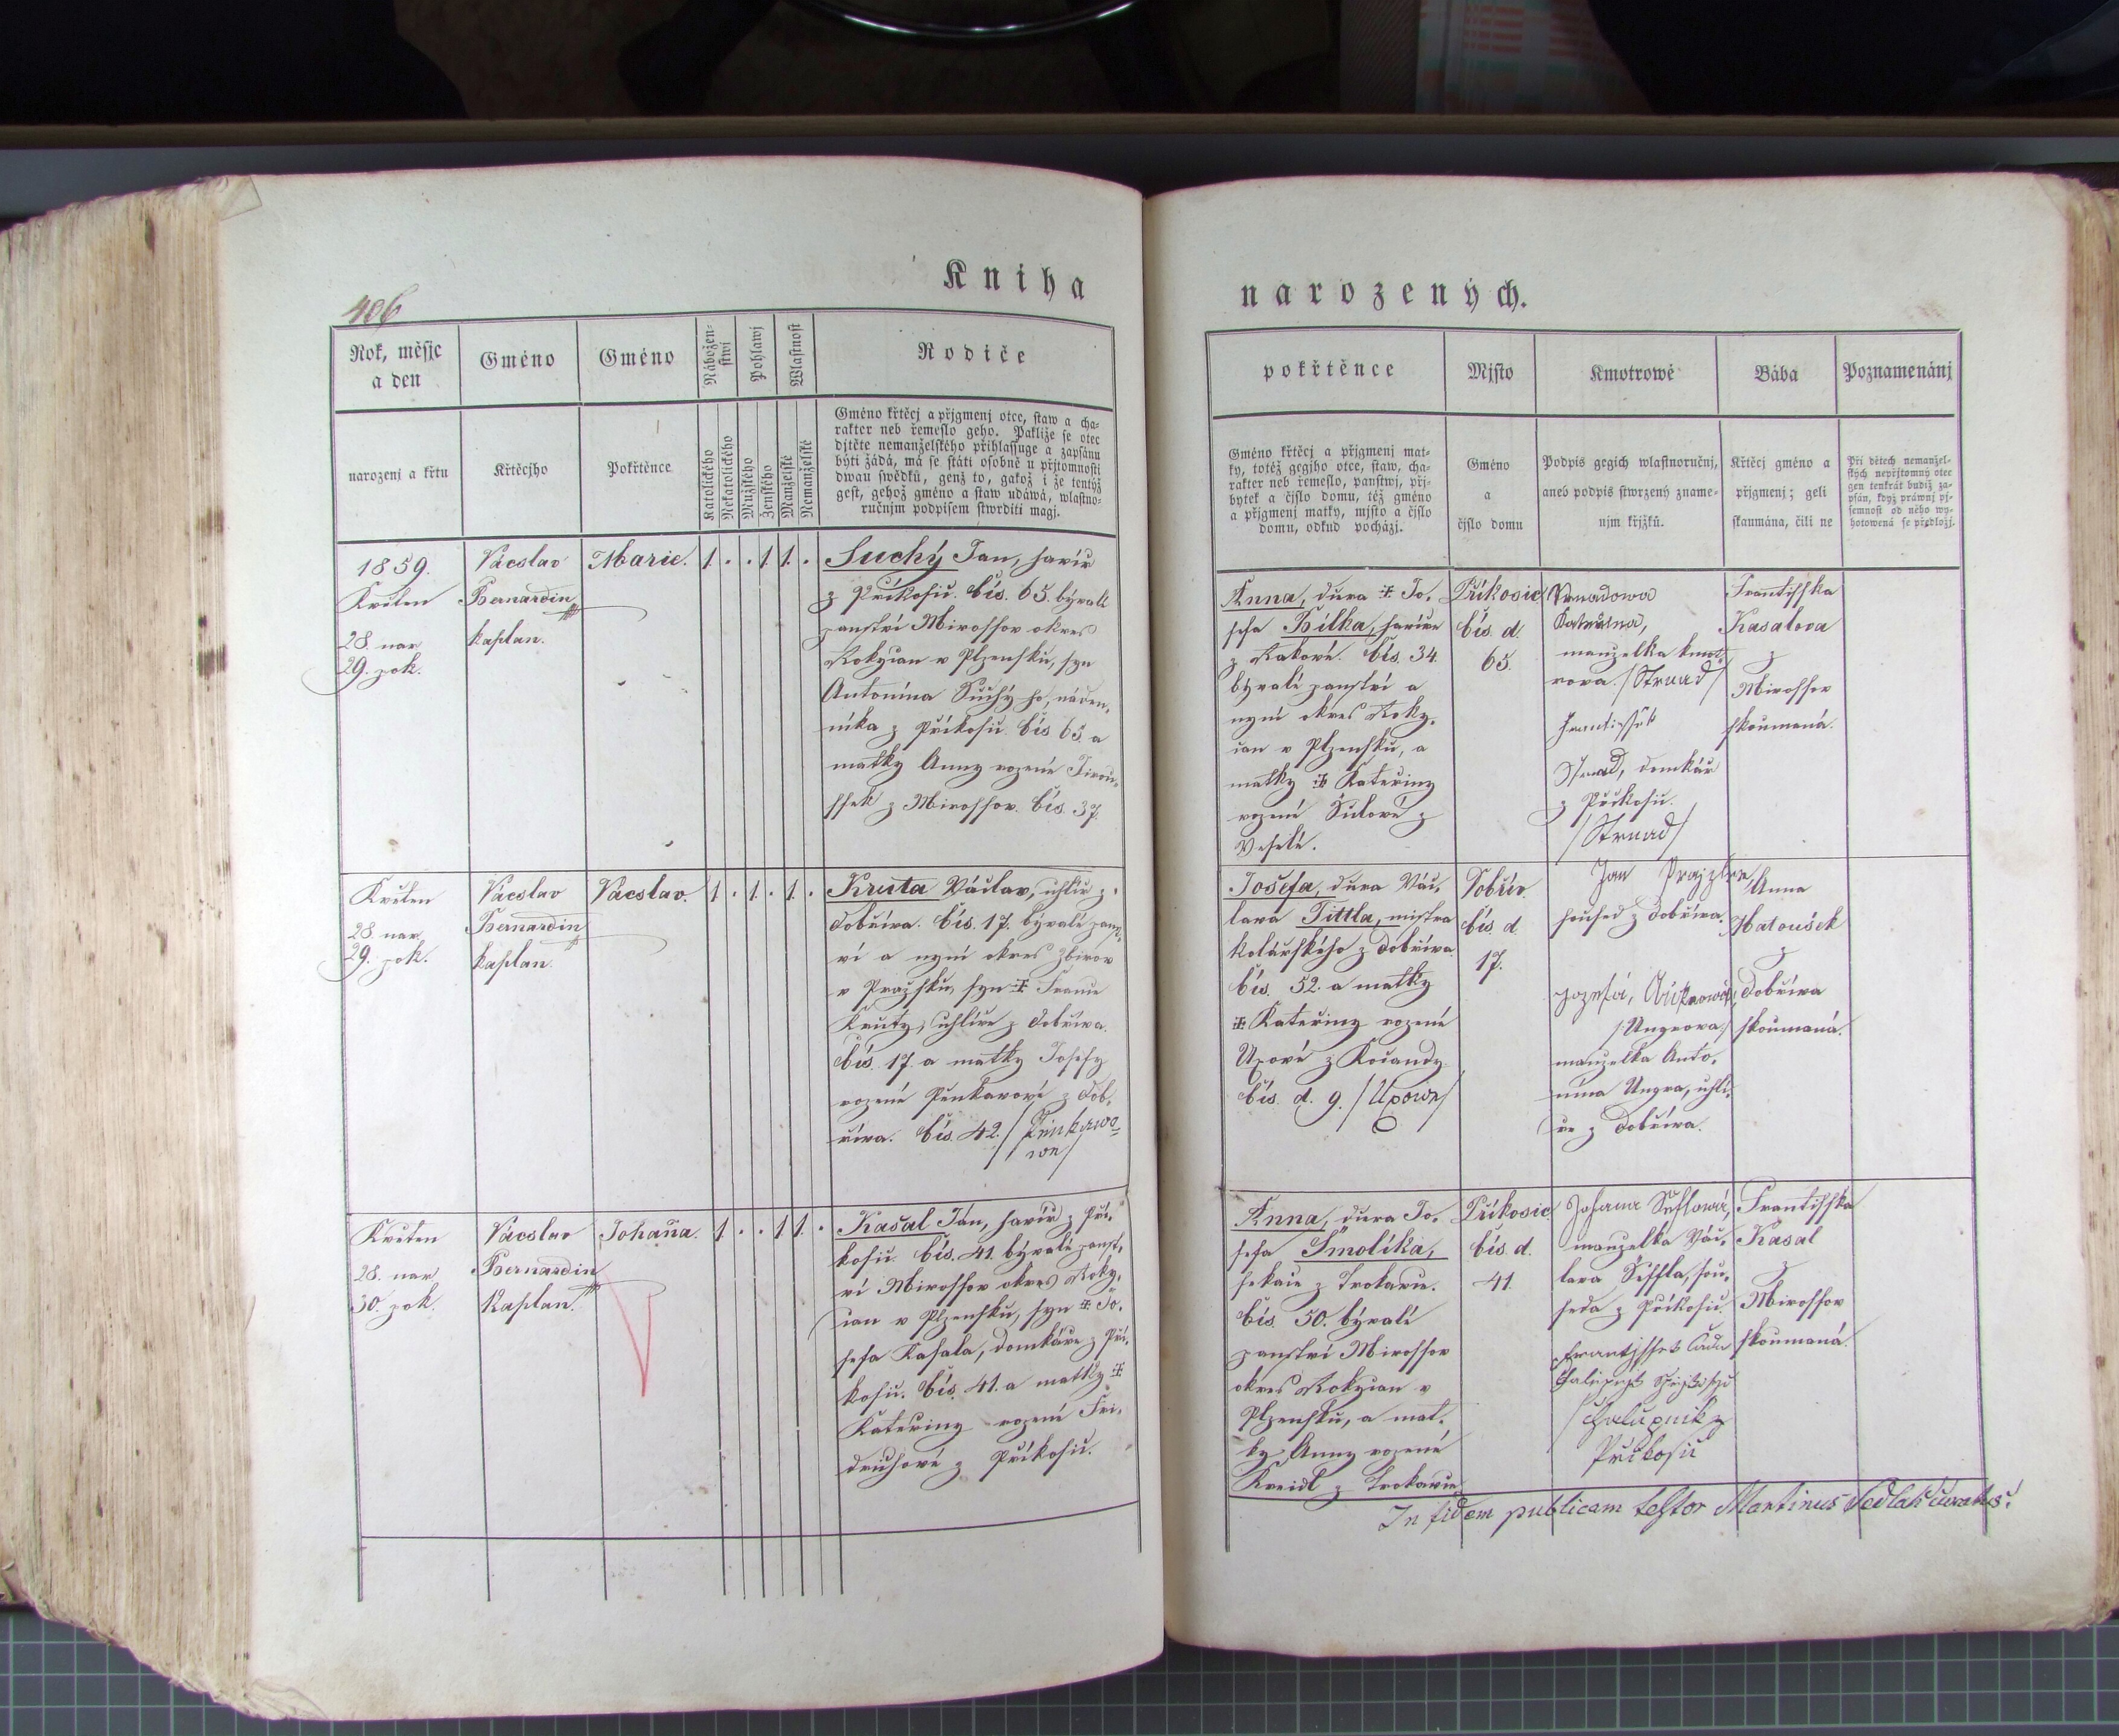 Kniha
narozených.
406
Rok, měsjc
a den
Gméno
Gméno
Nábožen-
stwj
Pohlawj
Wlastnost
Rodiče
narozenj a křtu
Křtěcjho
Pokřtěnce
Katolického
Nekatolického
Mužského
Ženského
Manželské
Nemanželské
Gméno křtěcj a přjgmenj otce, staw a cha-
rakter neb řemeslo geho. Pakliže se otec
djtěte nemanželského přihlassuge a zapsánu
býti žádá, má se státi osobně u přjtomnosti
dwau swědků, genž to, gakož i že tentýž
gest, gehož gméno a staw udáwá, wlastno-
ručnjm podpisem stwrditi magj.
1859.
Květen
28. nar
29. pok.
Vácslav
Bernardin
kaplan.
Marie.
1 . . 1 1 .
Suchý Jan, havíř
z Příkosic. čís. 65. bývalé
panství Mirossov okres
Rokycan v Plzensku, syn
Antonína Suchýho, náden,
níka z Příkosic čís 65 a
matky Anny rozené Jirou-
ssek z Mirossov. čís. 37.
Květen
28. nar
29. pok.
Vácslav
Bernardin
kaplan.
Vácslav.
1 . 1 . 1 .
Kruta Václav, uhlíř z
Dobříva. čís. 17. bývalé panst,
ví a nyní okres Zbirov
v Pražsku, syn ‡ France
Kruty, uhlíře z Dobříva.
čís. 17. a matky Josefy
rozené Penkavové z Dob,
říva. čís. 42. /Pinkawo-
we/
Květen
28. nar
30. pok.
Vácslav
Bernardin
Kaplan.
Johaña.
1 . . 1 1 .
Kasal Jan, havíř z Pří,
kosic čís. 41. bývalé panst,
ví Mirossov okres Roky,
can v Plzensku, syn ‡ Jo,
sefa Kasala, domkáře z Pří,
kosic. čís. 41. a matky ‡
Kateřiny rozené Fri,
druhové z Příkosic.
pokřtěnce
Mjsto
Kmotrowé
Bába
Poznamenánj
Gméno křtěcj a přjgmenj mat-
ky, totéž gegjho otce, staw, cha-
rakter neb řemeslo, panstwj, přj-
bytek a čjslo domu, též gméno
a přjgmenj matky, mjsto a čjslo
domu, odkud pocházj.
Gméno
a
čjslo domu
Podpis gegich wlastnoručnj,
aneb podpis stwrzený zname-
njm křjžků.
Křtěcj gméno a
přjgmenj; geli
skaumána, čili ne
Při dětech nemanžel-
ských nepřjtomný otec
gen tenkrát budiž za-
psán, když práwnj pj-
semnost od něho wy-
hotowená se předložj.
Anna, dcera ‡ Jo,
sefa Bílka, havíře
z Rakové. čís. 34.
bývalé panství a
nyní okres Roky,
can v Plzensku, a
matky ‡ Kateřiny
rozené Šulové z
Veselé.
Příkosic
čís. d.
65.
Strnadowa
Kateřina,
manželka kmot,
rova. /Strnad/
Frantissek
Strnad, domkář
z Příkosic.
/Strnad/
Frantisska
Kasalova
z
Mirossov
skoumaná.
Josefa, dcera Vác,
lava Tittla, mistra
kolářského z Dobříva
čís. 52. a matky
‡ Kateřiny rozené
Uxové z Kocandy
čís. d. 9. /Uxowe/
Dobřív.
čís d.
17.
Jan Prajzler,
soused z Dobříva.
Jozefa,
/Ungrova/
manželka Anto,
nína Ungra, uhlí,
ře z Dobříva.
Anna
Matoušek
z
Dobříva
skoumaná.
Anna, dcera Jo,
sefa Smolíka,
sekáče z Trokavec.
čís. 50. bývalé
panství Mirossov
okres Rokycan v
Plzensku, a mat,
ky Anny rozené
Kreidl z Trokavec
Příkosic
čís. d.
41.
Johana Seflowá,
manželka Vác,
lava Seffla, sou,
seda z Příkosic.
Frantjssek Čada
/Chalupník z
Příkosic
Frantisska
Kasal
z
Mirossov
skoumaná.
In fidem publicam testor Martinus Sedlak curatus.